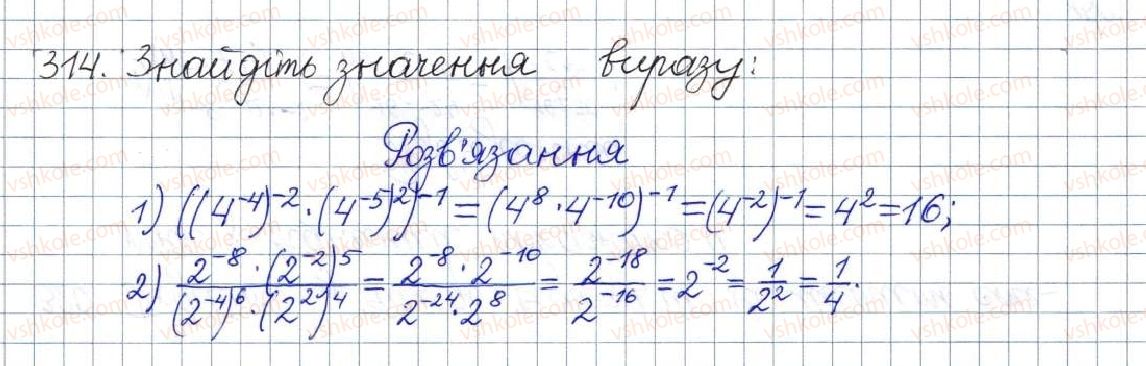 314. Знайдіть значення виразу:
Розв'язання
1) ((4⁻⁴)⁻² · (4⁻⁵)²)⁻¹ = (4⁸ · 4⁻¹⁰)⁻¹ = (4⁻²)⁻¹ = 4² = 16;
2) (2⁻⁸ · (2⁻²)⁵) / ((2⁻⁴)⁶ · (2²)⁴) = (2⁻⁸ · 2⁻¹⁰) / (2⁻²⁴ · 2⁸) = 2⁻¹⁸ / 2⁻¹⁶ = 2⁻² = 1/2² = 1/4.